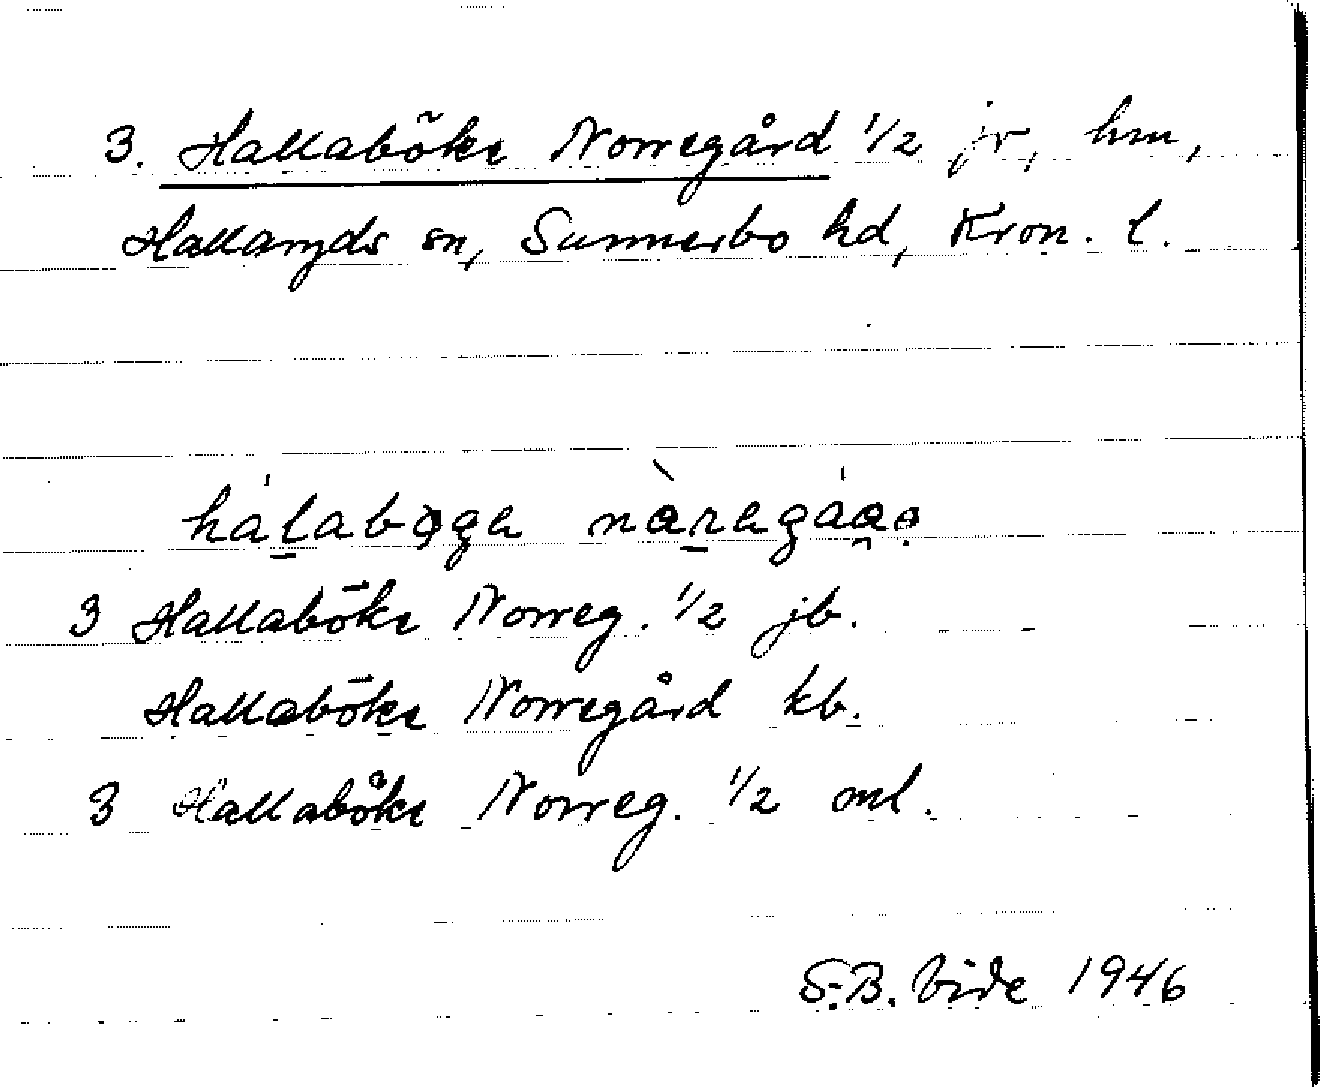 3. Hallaböke Norregård 1/2 jr, hm,
Hallaryds sn, Sunnerbo hd, Kron. l.
3 Hallaböke Norreg. 1/2 jb.
Hallaböke Norregård kb.
3 Hallaböke Norreg. 1/2 ml.
S.-B. Vide 1946